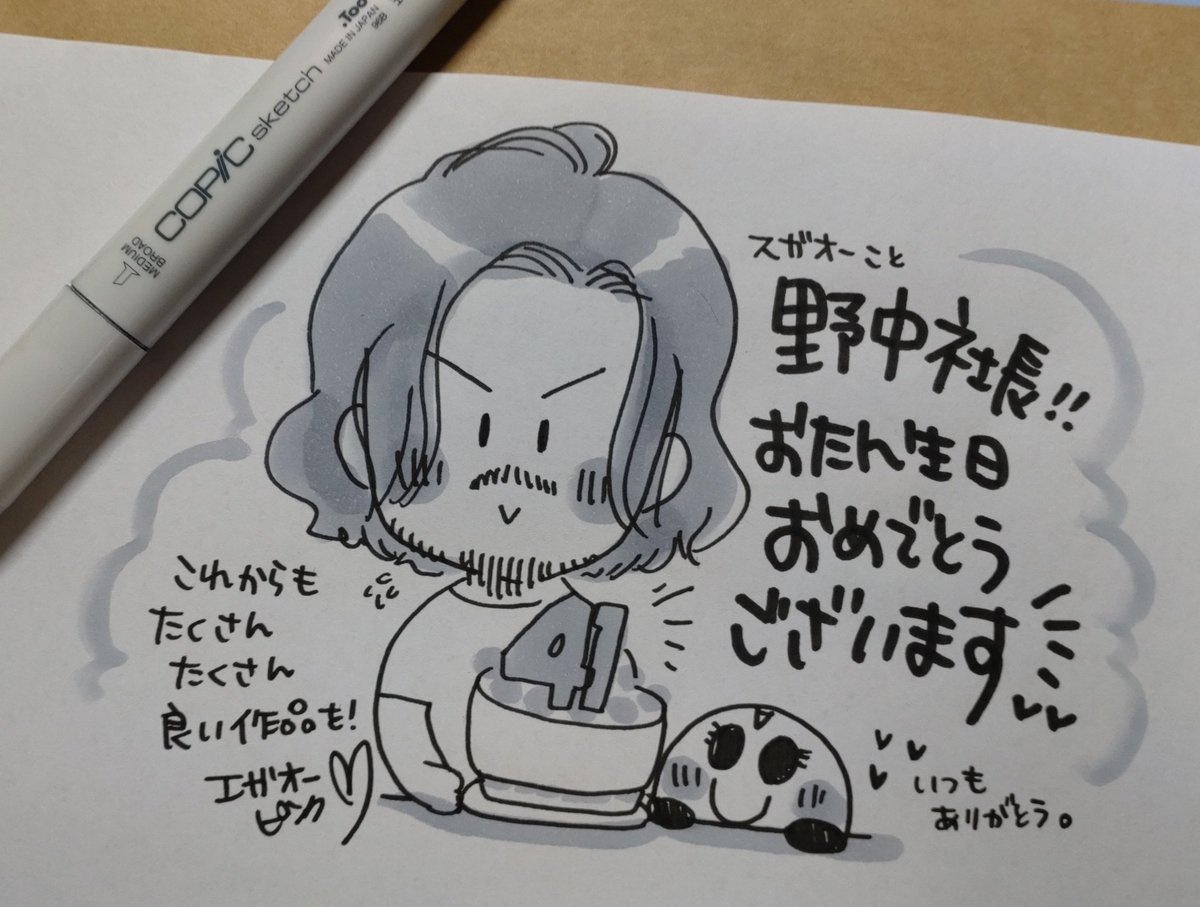 .Too
MADE IN JAPAN
98B
COPIC sketch
MEDIUM
BROAD
スガオーこと
野中社長!!
おたん生日
おめでとう
ございます
41
これからも
たくさん
たくさん
良い作品も!
エガオー
いつも
ありがとう。